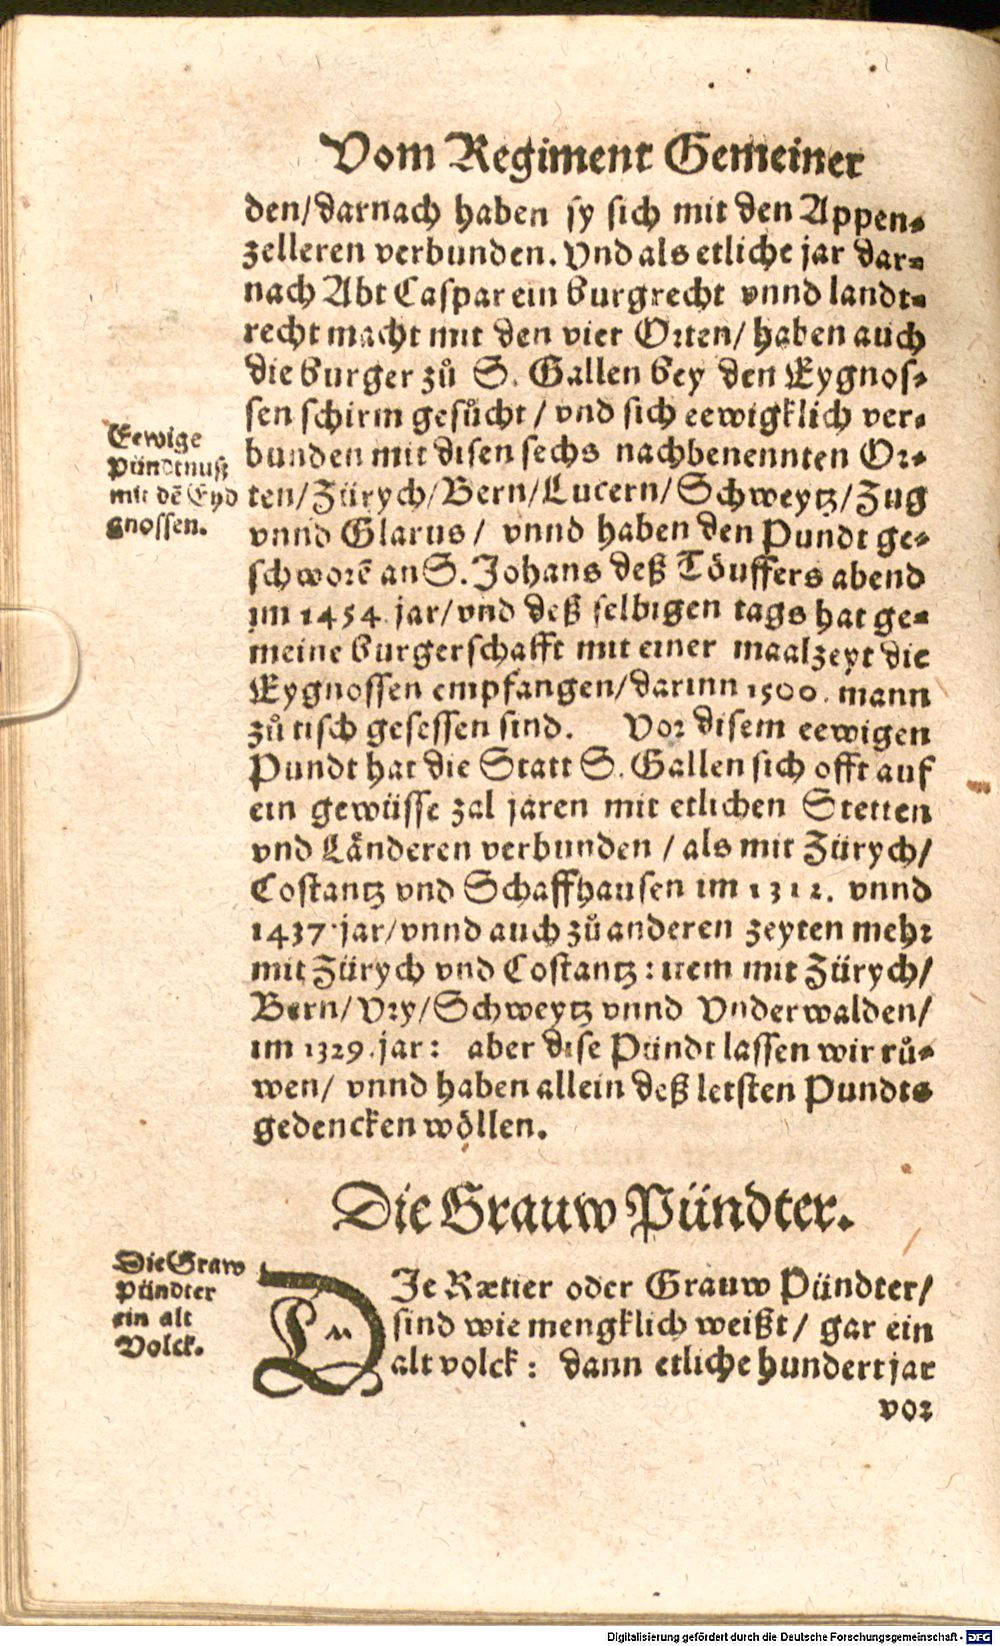 Vom Regiment Gemeiner
den/darnach haben sy sich mit den Appen⸗
zelleren verbunden. Vnd als etliche jar dar⸗
nach Abt Caspar ein burgrecht vnnd landt⸗
recht macht mit den vier Orten/ haben auch
die burger zů S. Gallen bey den Eygnos⸗
sen schirm gesůcht / vnd sich eewigklich ver⸗
bunden mit disen sechs nachbenennten Or⸗
ten/Zürych/Bern/Lucern/Schweytz/Zug
vnnd Glarus/ vnnd haben den Pundt ge⸗
schworē an S. Johans deß Töuffers abend
im 1454. jar/vnd deß selbigen tags hat ge⸗
meine burgerschafft mit einer maalzeyt die
Eygnossen empfangen/darinn 1500. mann
zů tisch gesessen sind. Vor disem eewigen
Pundt hat die Statt S. Gallen sich offt auf
ein gewüsse zal jaren mit etlichen Stetten
vnd Länderen verbunden / als mit Zürych/
Costantz vnd Schaffhausen im 1312. vnnd
1437. jar/vnnd auch zů anderen zeyten mehr
mit Zürych vnd Costantz: item mit Zürych/
Bern/Vry/Schweytz vnnd Vnderwalden/
im 1329. jar: aber dise Pündt lassen wir rů⸗
wen/ vnnd haben allein deß letsten Pundts
gedencken wöllen.
Eewige
Pündtnuß
mit dē Eyd
gnossen.
Die Grauw Pündter.
Die Graw
Pündter
ein alt
Volck.
DIe Rætier oder Grauw Pündter/
sind wie mengklich weißt/ gar ein
alt volck: dann etliche hundert jar
vor
Digitalisierung gefördert durch die Deutsche Forschungsgemeinschaft - DFG